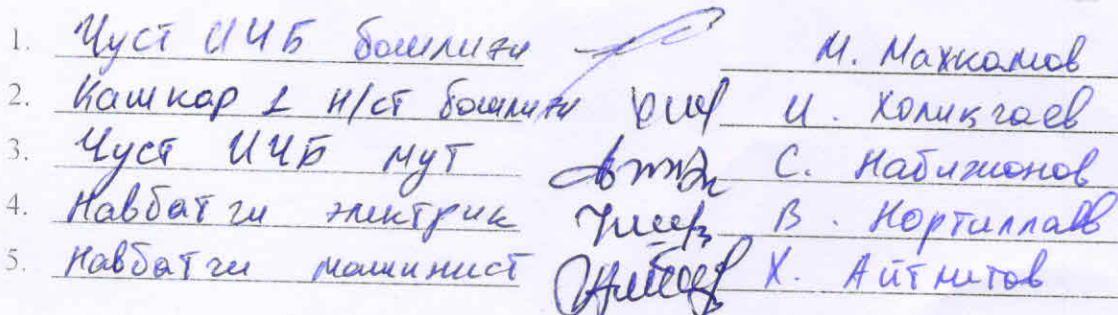 1. Чуст ИЧБ бошлиғи М. Махкамов
2. Кашкар 1 н/ст бошлиғи И. Холиқгаев
3. Чуст ИЧБ МУТ С. Набижонов
4. Навбатчи электрик В. Нортиллаев
5. Навбатчи машинист Х. Айтметов